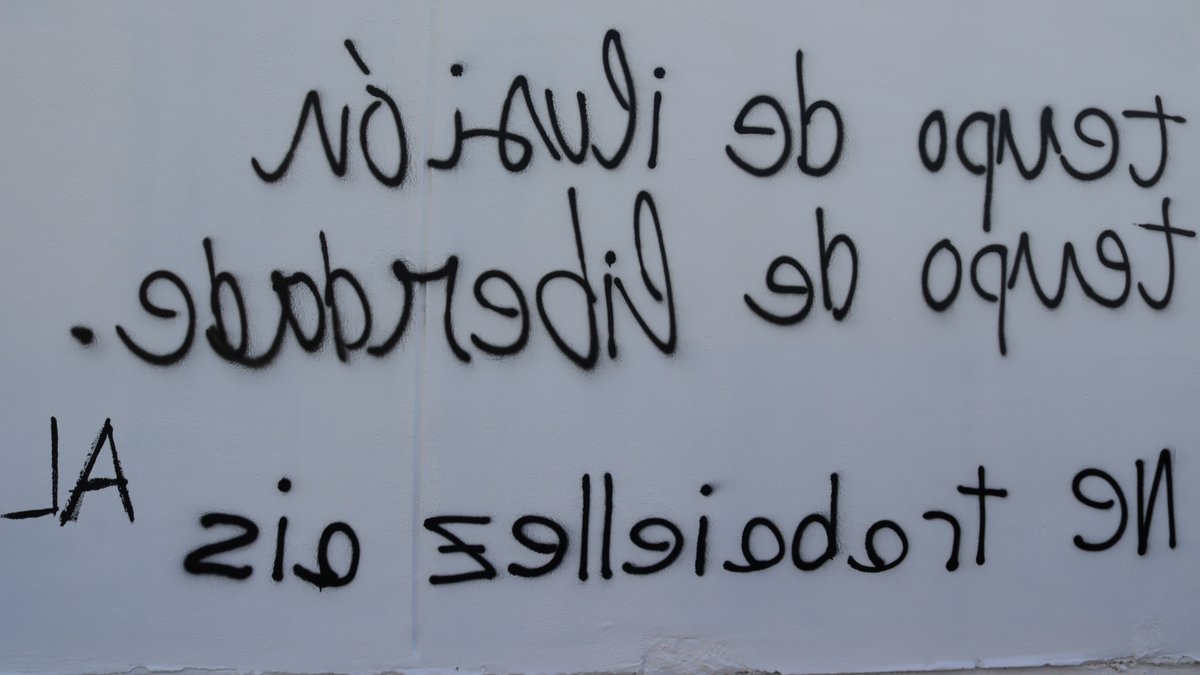 tempo de ilusión
tempo de liberdade.
AL
Ne trabaiellez ais